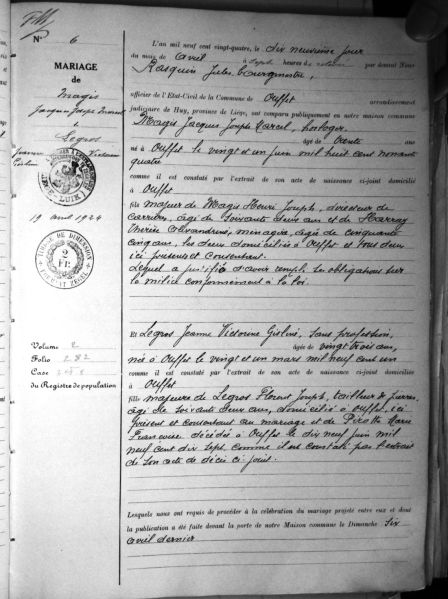 N° 6
MARIAGE
de
Magis
Jacques Joseph Marcel
&
Legros
Jeanne Victorine
19 avril 1924
TIMBRE DE DIMENSION
2
FR.
Volume 2
Folio 282
Case
du Registre de population
L'an mil neuf cent vingt-quatre, le dix neuvième jour
du mois de avril à sept heures de relevée par devant Nous
Rasquin Jules bourgmestre,
officier de l'Etat-Civil de la Commune de Ouffet arrondissement
judiciaire de Huy, province de Liège, ont comparu publiquement en notre maison commune
Magis Jacques Joseph Marcel, horloger,
âgé de trente ans
né à Ouffet le vingt et un juin mil huit cent nonante
quatre
comme il est constaté par l'extrait de son acte de naissance ci-joint domicilié
à Ouffet
fils majeur de Magis Henri Joseph, directeur de
carrière, âgé de soixante deux ans et de Harray
Marie Alexandrine, ménagère, âgée de cinquante
cinq ans, les deux domiciliés à Ouffet et tous deux
ici présents et consentant.
Lequel a justifié d'avoir rempli les obligations sur
la milice conformément à la loi.
Et Legros Jeanne Victorine Gislène, sans profession,
âgée de vingt trois ans,
née à Ouffet le vingt et un mars mil neuf cent un
comme il est constaté par l'extrait de son acte de naissance ci-joint domiciliée
à Ouffet
fille majeure de Legros Florent Joseph, tailleur de pierres,
âgé de soixante deux ans, domicilié à Ouffet, ici
présent et consentant au mariage et de Pirotte Marie
Françoise décédée à Ouffet le dix neuf juin mil
neuf cent dix sept comme il est constaté par l'extrait
de son acte de décès ci-joint.
Lesquels nous ont requis de procéder à la célébration du mariage projeté entre eux et dont
la publication a été faite devant la porte de notre Maison commune le Dimanche six
avril dernier